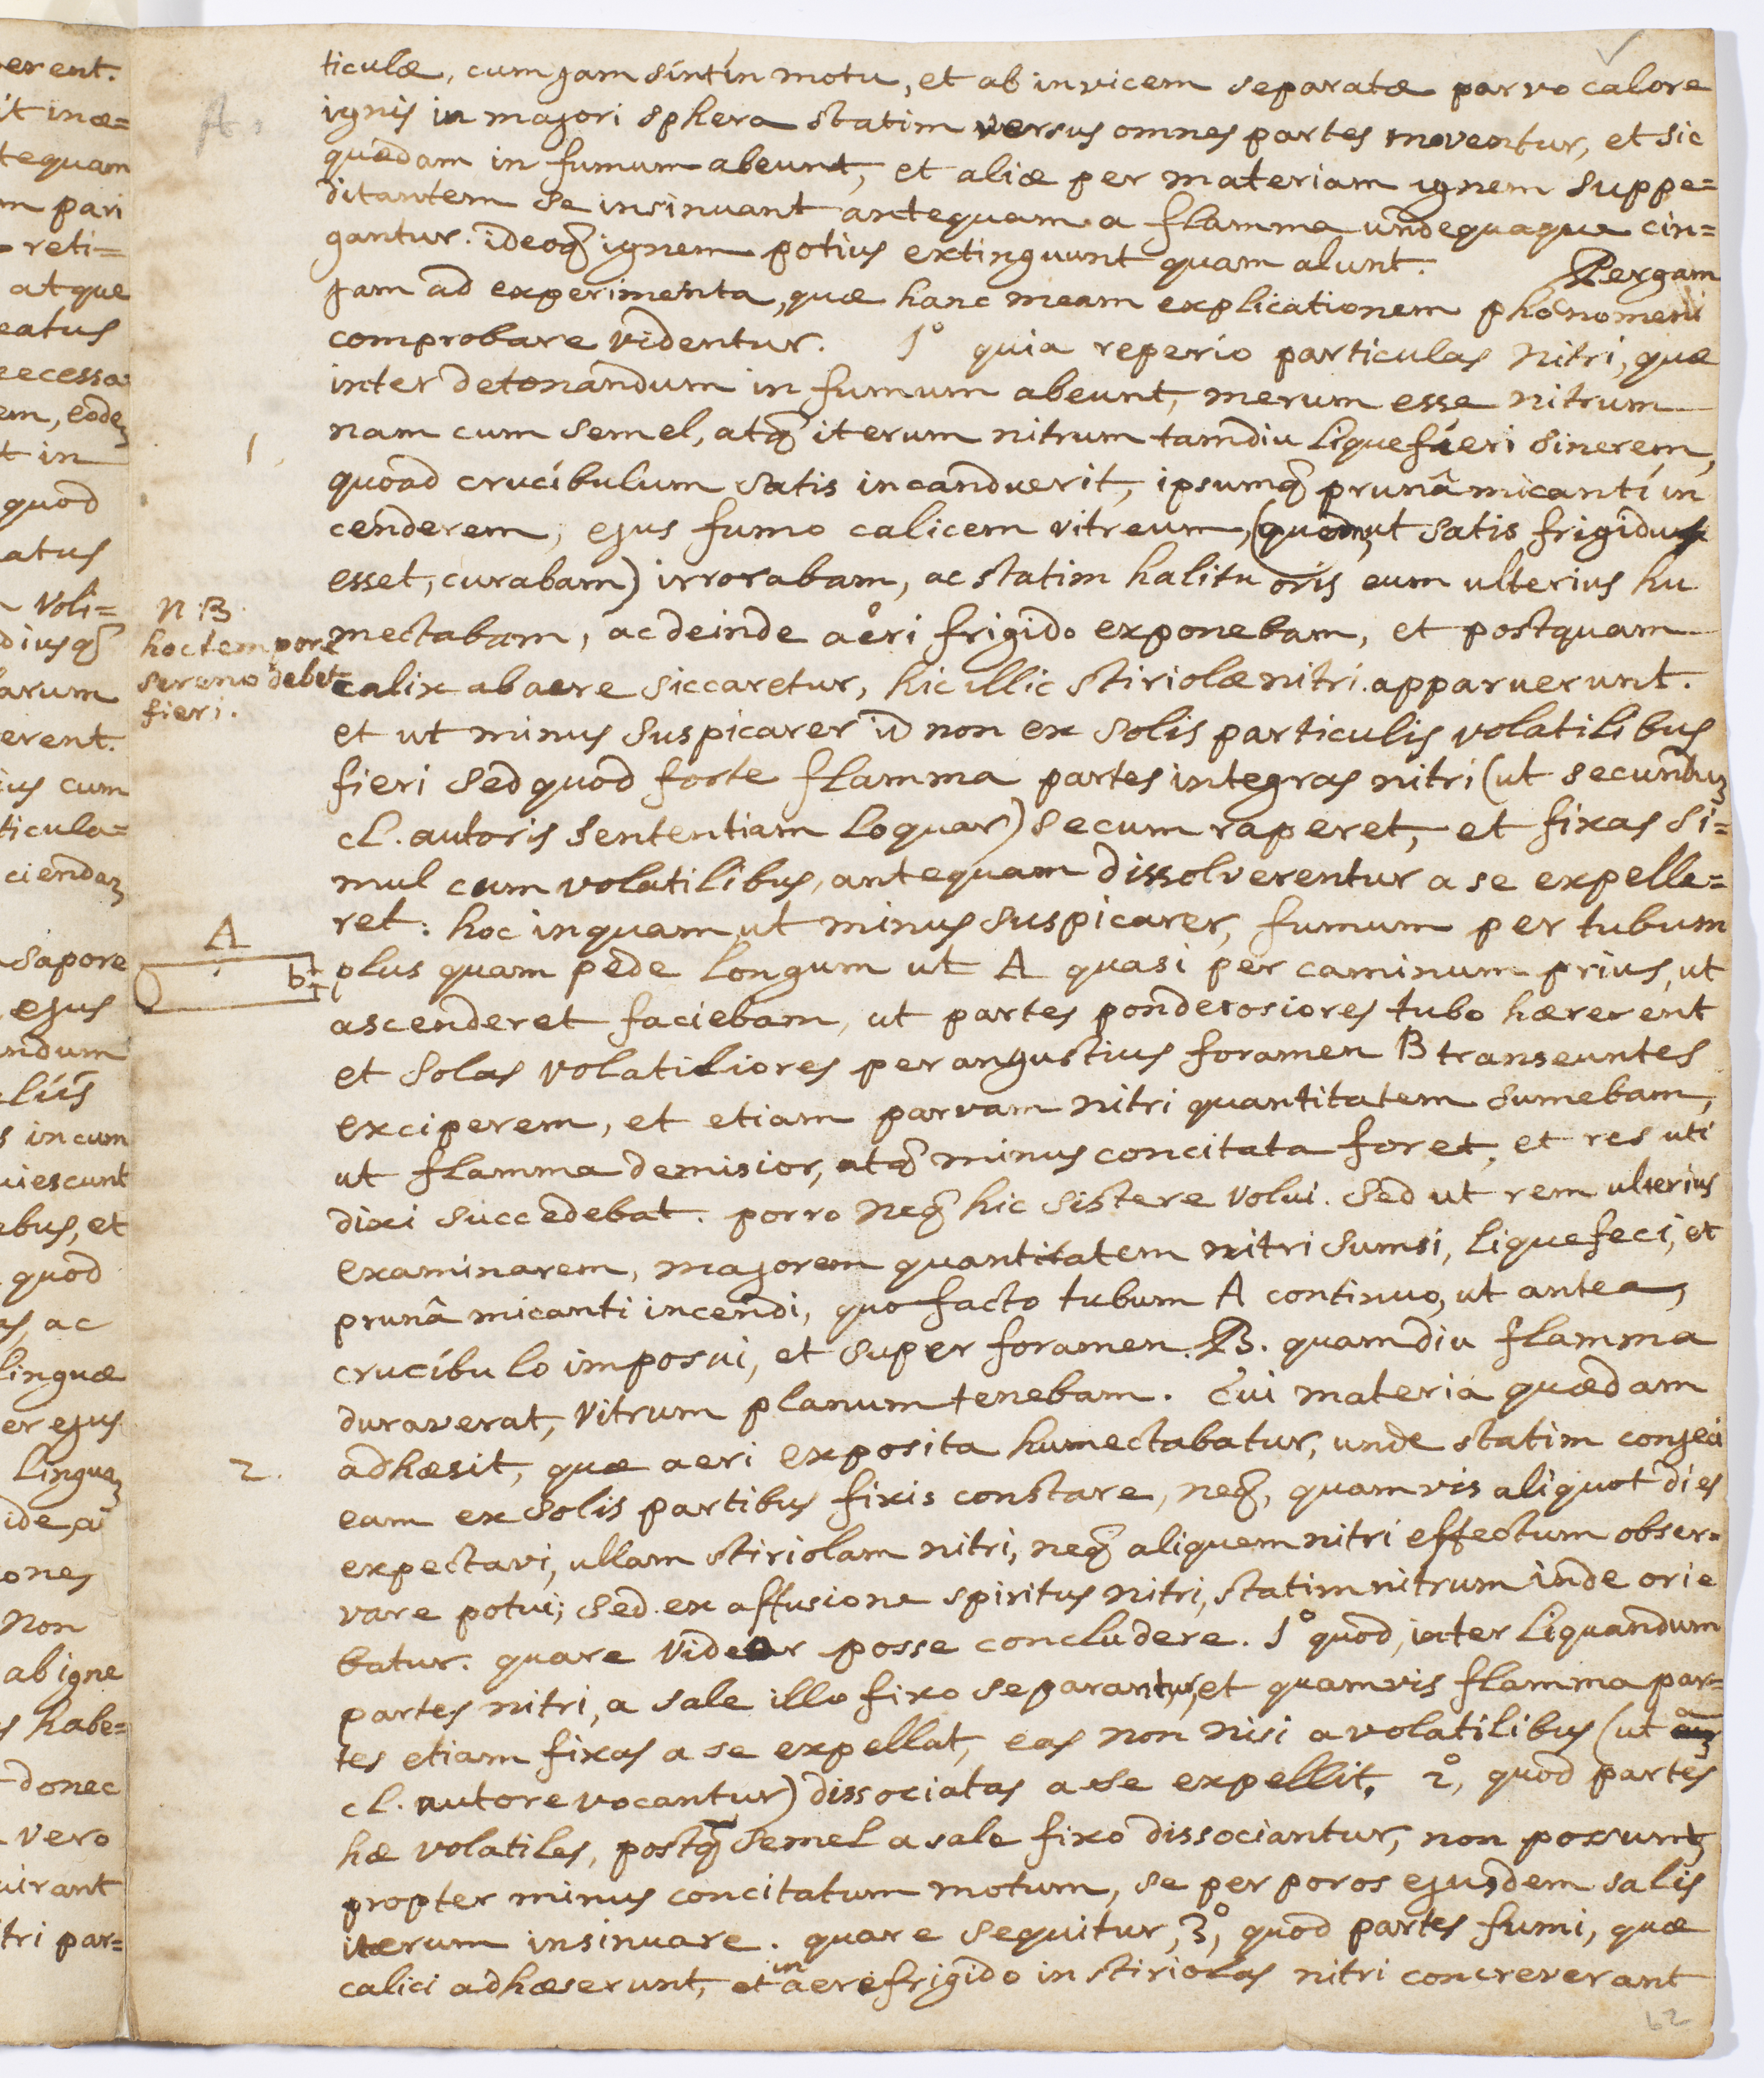 erent.
it inæ=
tequam
m pari
reti=
atque
eatus
ecessa
em, eodē
t in
quod
atus
Voli=
diusq
larum
erent.
ius cum
ticula=
ciendaʒ
sapore
ejus
ndum
liis
s incum
uiescunt
ebus, et
quod
as, ac
linguæ
er ejus
Linguaʒ
ide, a
ones
non
ab igne
s habe=
donec
vero
uirant
tri par=
A.
ticulæ, cum jam sint in motu, et ab invicem separatæ parvo calore
ignis in majori sphera statim versus omnes partes moventur, et sic
quædam in fumum abeunt, et aliæ per materiam ignem suppe=
ditantem se insinuant antequam a flamma undequaque cin=
gantur. ideoq ignem potius extinguunt quam alunt. Pergam
jam ad experimenta, quæ hanc meam explicationem phænomeni
comprobare videntur. 1° quia reperio particulas Nitri, quæ
inter detonandum in fumum abeunt, merum esse nitrum
1.
nam cum semel, atq iterum nitrum tamdiu liquefieri sinerem,
quoad crucibulum satis incanduerit, ipsumq prunâ micanti in
cenderem, ejus fumo calicem vitreum, (quem, ut satis frigidus
esset, curabam) irrorabam, ac statim halitu oris eum ulterius hu
N:B.
hoc tempore
sereno debet
fieri.
mectabam, ac deinde aëri frigido exponebam, et postquam
calix ab aere siccaretur, hic illic stiriolæ nitri apparuerunt.
et ut minus suspicarer id non ex solis particulis volatilibus
fieri sed quod forte flamma partes integras nitri (ut secunduʒ
cl. autoris sententiam loquar) secum raperet, et fixas si=
mul cum volatilibus, antequam dissolverentur a se expelle=
ret: hoc inquam ut minus suspicarer, fumum per tubum
A
b
plus quam pede longum ut A quasi per caminum prius, ut
ascenderet faciebam, ut partes ponderosiores tubo hærerent
et solas volatiliores per angustius foramen B transeuntes
exciperem, et etiam parvam nitri quantitatem sumebam,
ut flamma demisior, atq minus concitata foret, et res uti
dixi succedebat. porro neq hic sistere volui. sed ut rem ulterius
examinarem, majorem quantitatem nitri sumsi, liquefeci, et
prunâ micanti incendi, quo facto tubum A continuo, ut antea,
crucibulo imposui, et super foramen B. quamdiu flamma
duraverat, vitrum planum tenebam. cui materia quædam
2.
adhæsit, quæ aeri exposita humectabatur, unde statim conjeci
eam ex solis partibus fixis constare, neq, quamvis aliquot dies
expectavi, ullam stiriolam nitri, neq aliquem nitri effectum obser=
vare potui; sed ex affusione spiritus nitri, statim nitrum inde orie
batur. quare videor posse concludere. 1° quod, inter liquandum
partes nitri, a sale illo fixo separantur, et quamvis flamma par=
tes etiam fixas a se expellat, eas non nisi a volatilibus (ut a
cl. autore vocantur) dissociatas a se expellit. 2°, quod partes
hæ volatiles, postq̄ semel a sale fixo dissociantur, non possunt,
propter minus concitatum motum, se per poros ejusdem salis
iterum insinuare. quare sequitur, 3°, quod partes fumi, quæ
calici adhæserunt, et in aere frigido in stiriolas nitri concreverant
62